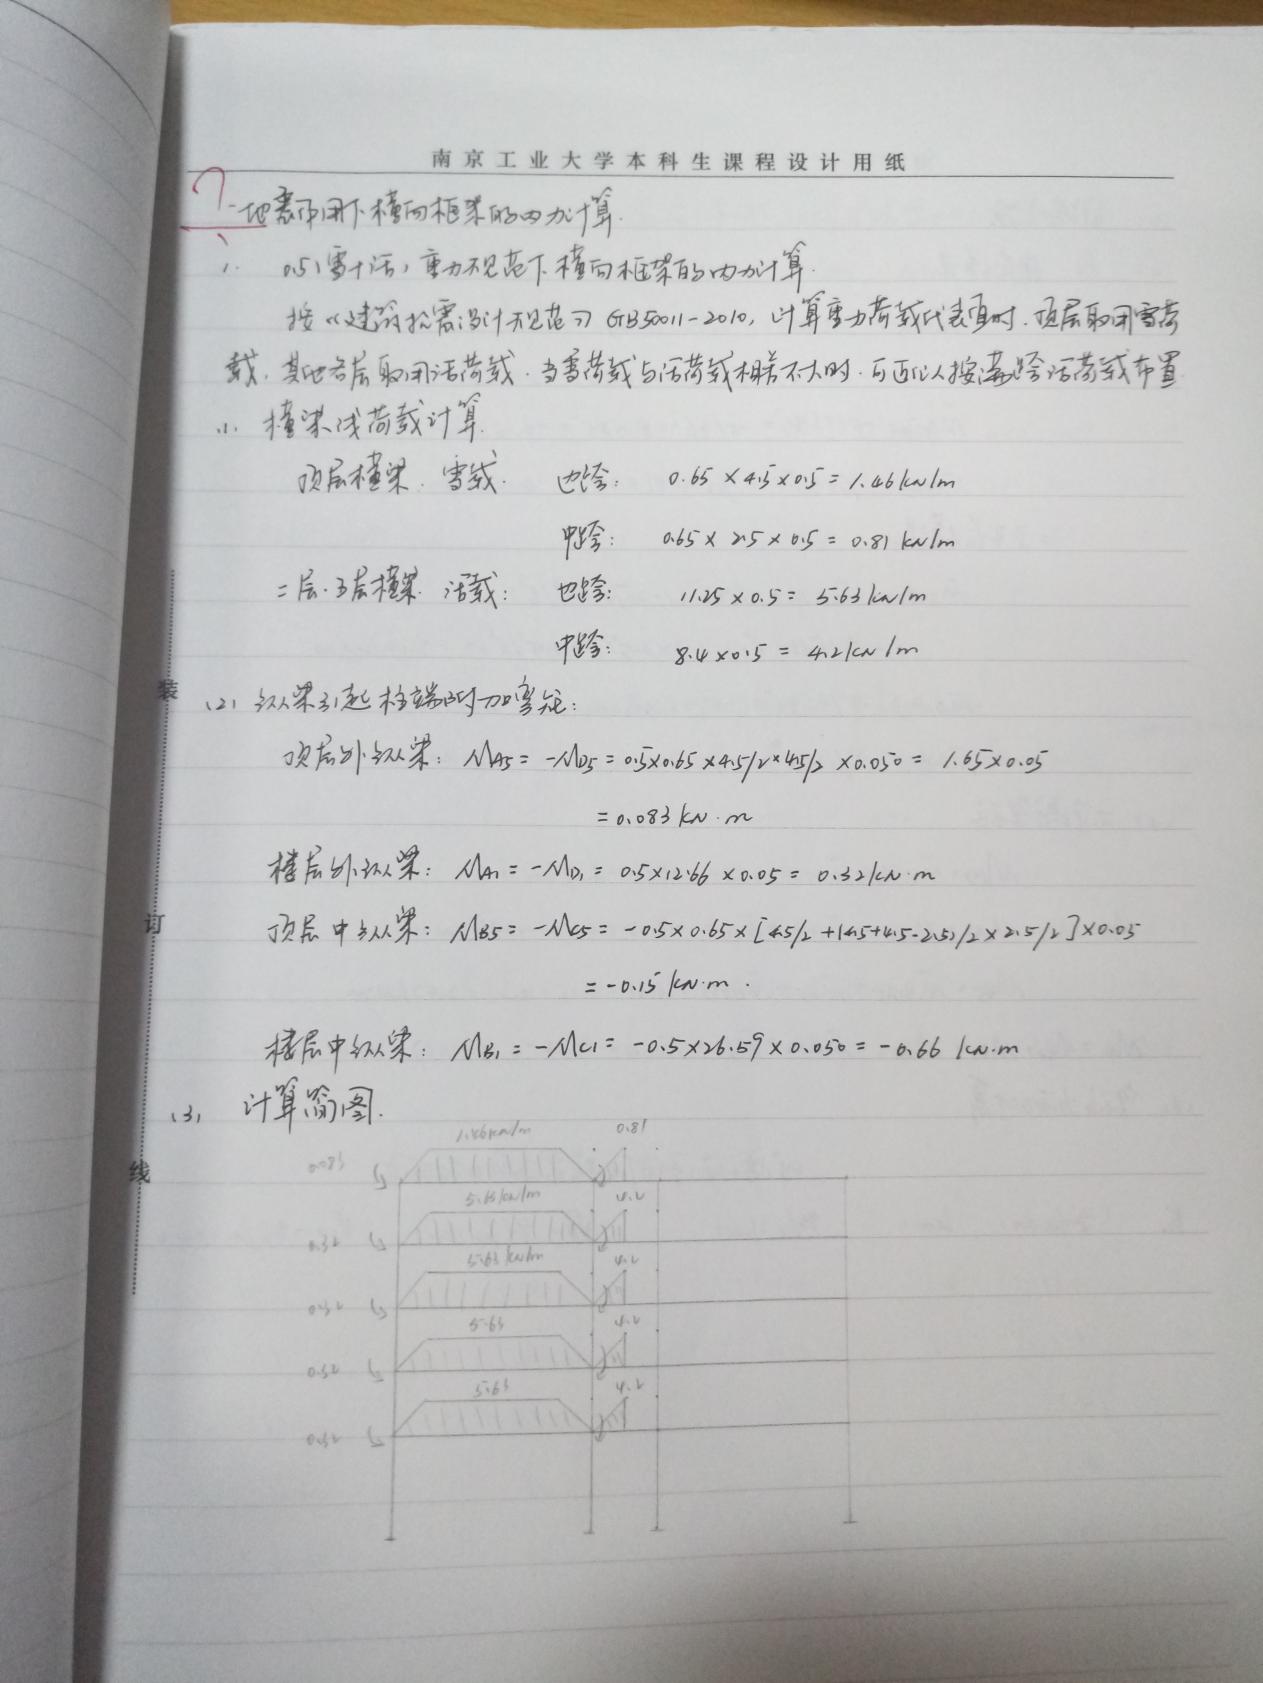 南京工业大学本科生课程设计用纸
一地震作用下横向框架的内力计算.
1. 0.5(雪+活)重力规范下横向框架的内力计算.
按《建筑抗震设计规范》GB50011-2010,计算重力荷载代表值时.顶层取用雪荷
载.其他各层取用活荷载.当雪荷载与活荷载相差不大时.可近似按满跨活荷载布置
(1). 横梁线荷载计算.
顶层横梁. 雪载. 边跨: 0.65×4.5×0.5=1.46kN/m
中跨: 0.65×2.5×0.5=0.81 kN/m
二层.5层横梁. 活载: 边跨: 11.25×0.5= 5.63kN/m
中跨: 8.4×0.5 = 4.2kN/m
装
(2) 纵梁引起柱端附加弯矩:
顶层外纵梁: MA5 = -MD5 = 0.5×0.65×4.5/2×4.5/2 ×0.050= 1.65×0.05
=0.083kN·m
楼层外纵梁: MA1 = -MD1 = 0.5×12.66×0.05= 0.32kN·m
订
顶层中纵梁: MB5= -MC5= -0.5×0.65×[4.5/2 +(4.5+4.5-2.5)/2×2.5/2]×0.05
=-0.15kN·m.
楼层中纵梁: MB1 = -MC1= -0.5×26.59×0.050=-0.66 kN·m
(3) 计算简图.
1.46kN/m 0.81
线
0.083
5.63kN/m 4.2
0.32
5.63kN/m 4.2
0.32
5.63 4.2
0.32
5.63 4.2
0.32